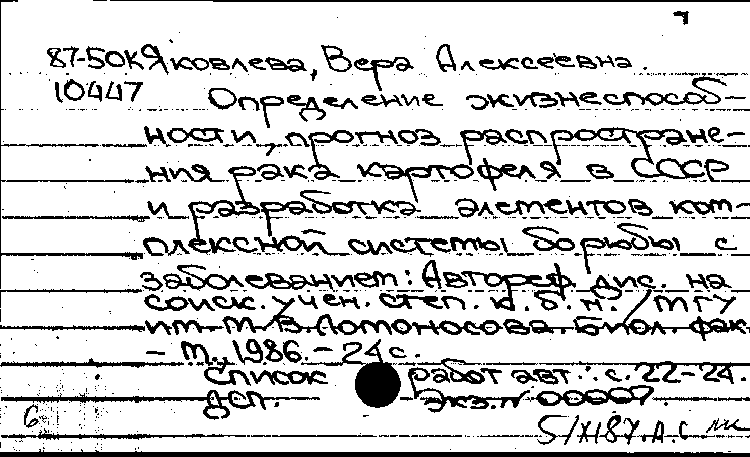 87-50К Яковлева, Вера Алексеевна.
10447 Определение жизнеспособ-
ности, прогноз распростране-
ния рака картофеля в СССР
и разработка элементов ком-
плексной системы борьбы с
заболеванием: Автореф. дис. на
соиск. учен. степ. к. б. н. / МГУ
им. М. В. Ломоносова. Биол. фак.
- М., 1986. - 24 с.
Список работ авт.: с. 22-24.
ДСП. Экз. N 00007.
6 5/XI87. А.С.